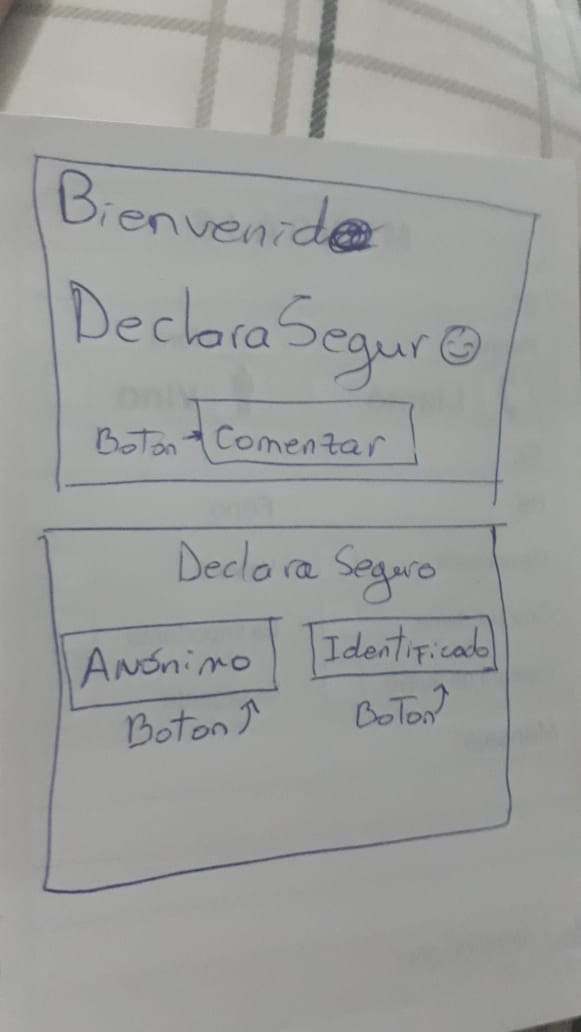 Bienvenido
Declara Seguro
Boton → Comenzar
Declara Seguro
Anónimo Identificado
Boton ↑ Boton ↑